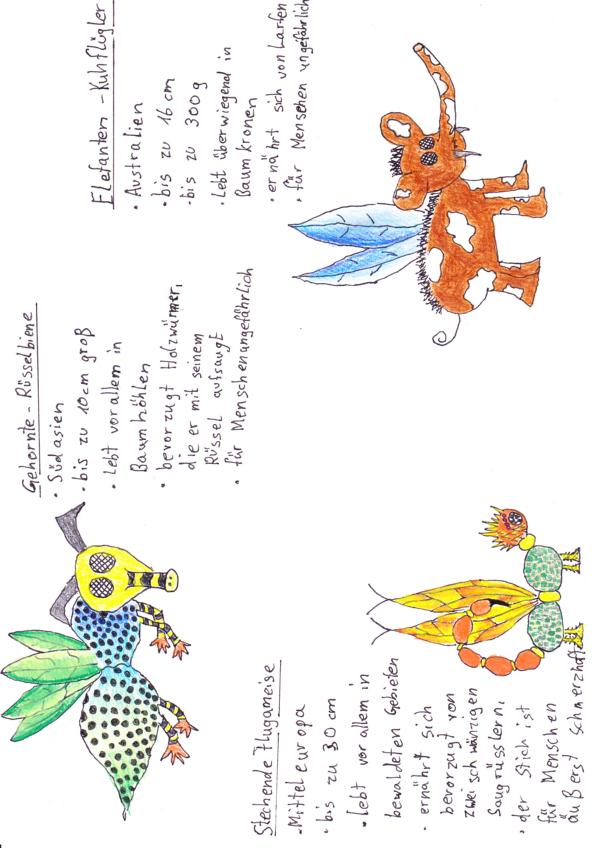 Gehörnte - Rüsselbiene
• Südasien
• bis zu 10cm groß
• lebt vor allem in
Baumhöhlen
• bevorzugt Holzwürmer,
die er mit seinem
Rüssel aufsaugt
• für Menschen angefährlich
Elefanten - Kuhflügler
• Australien
• bis zu 16 cm
• bis zu 300g
• Lebt überwiegend in
Baumkronen
• ernährt sich von Larfen
• für Menschen ungefährlich
Stechende Flugameise
• Mitteleuropa
• bis zu 30 cm
• lebt vor allem in
bewaldeten Gebieten
• ernährt sich
bevorzugt von
zweischwänzigen
Saugrüsslern,
• der Stich ist
für Menschen
äußerst schmerzhaft